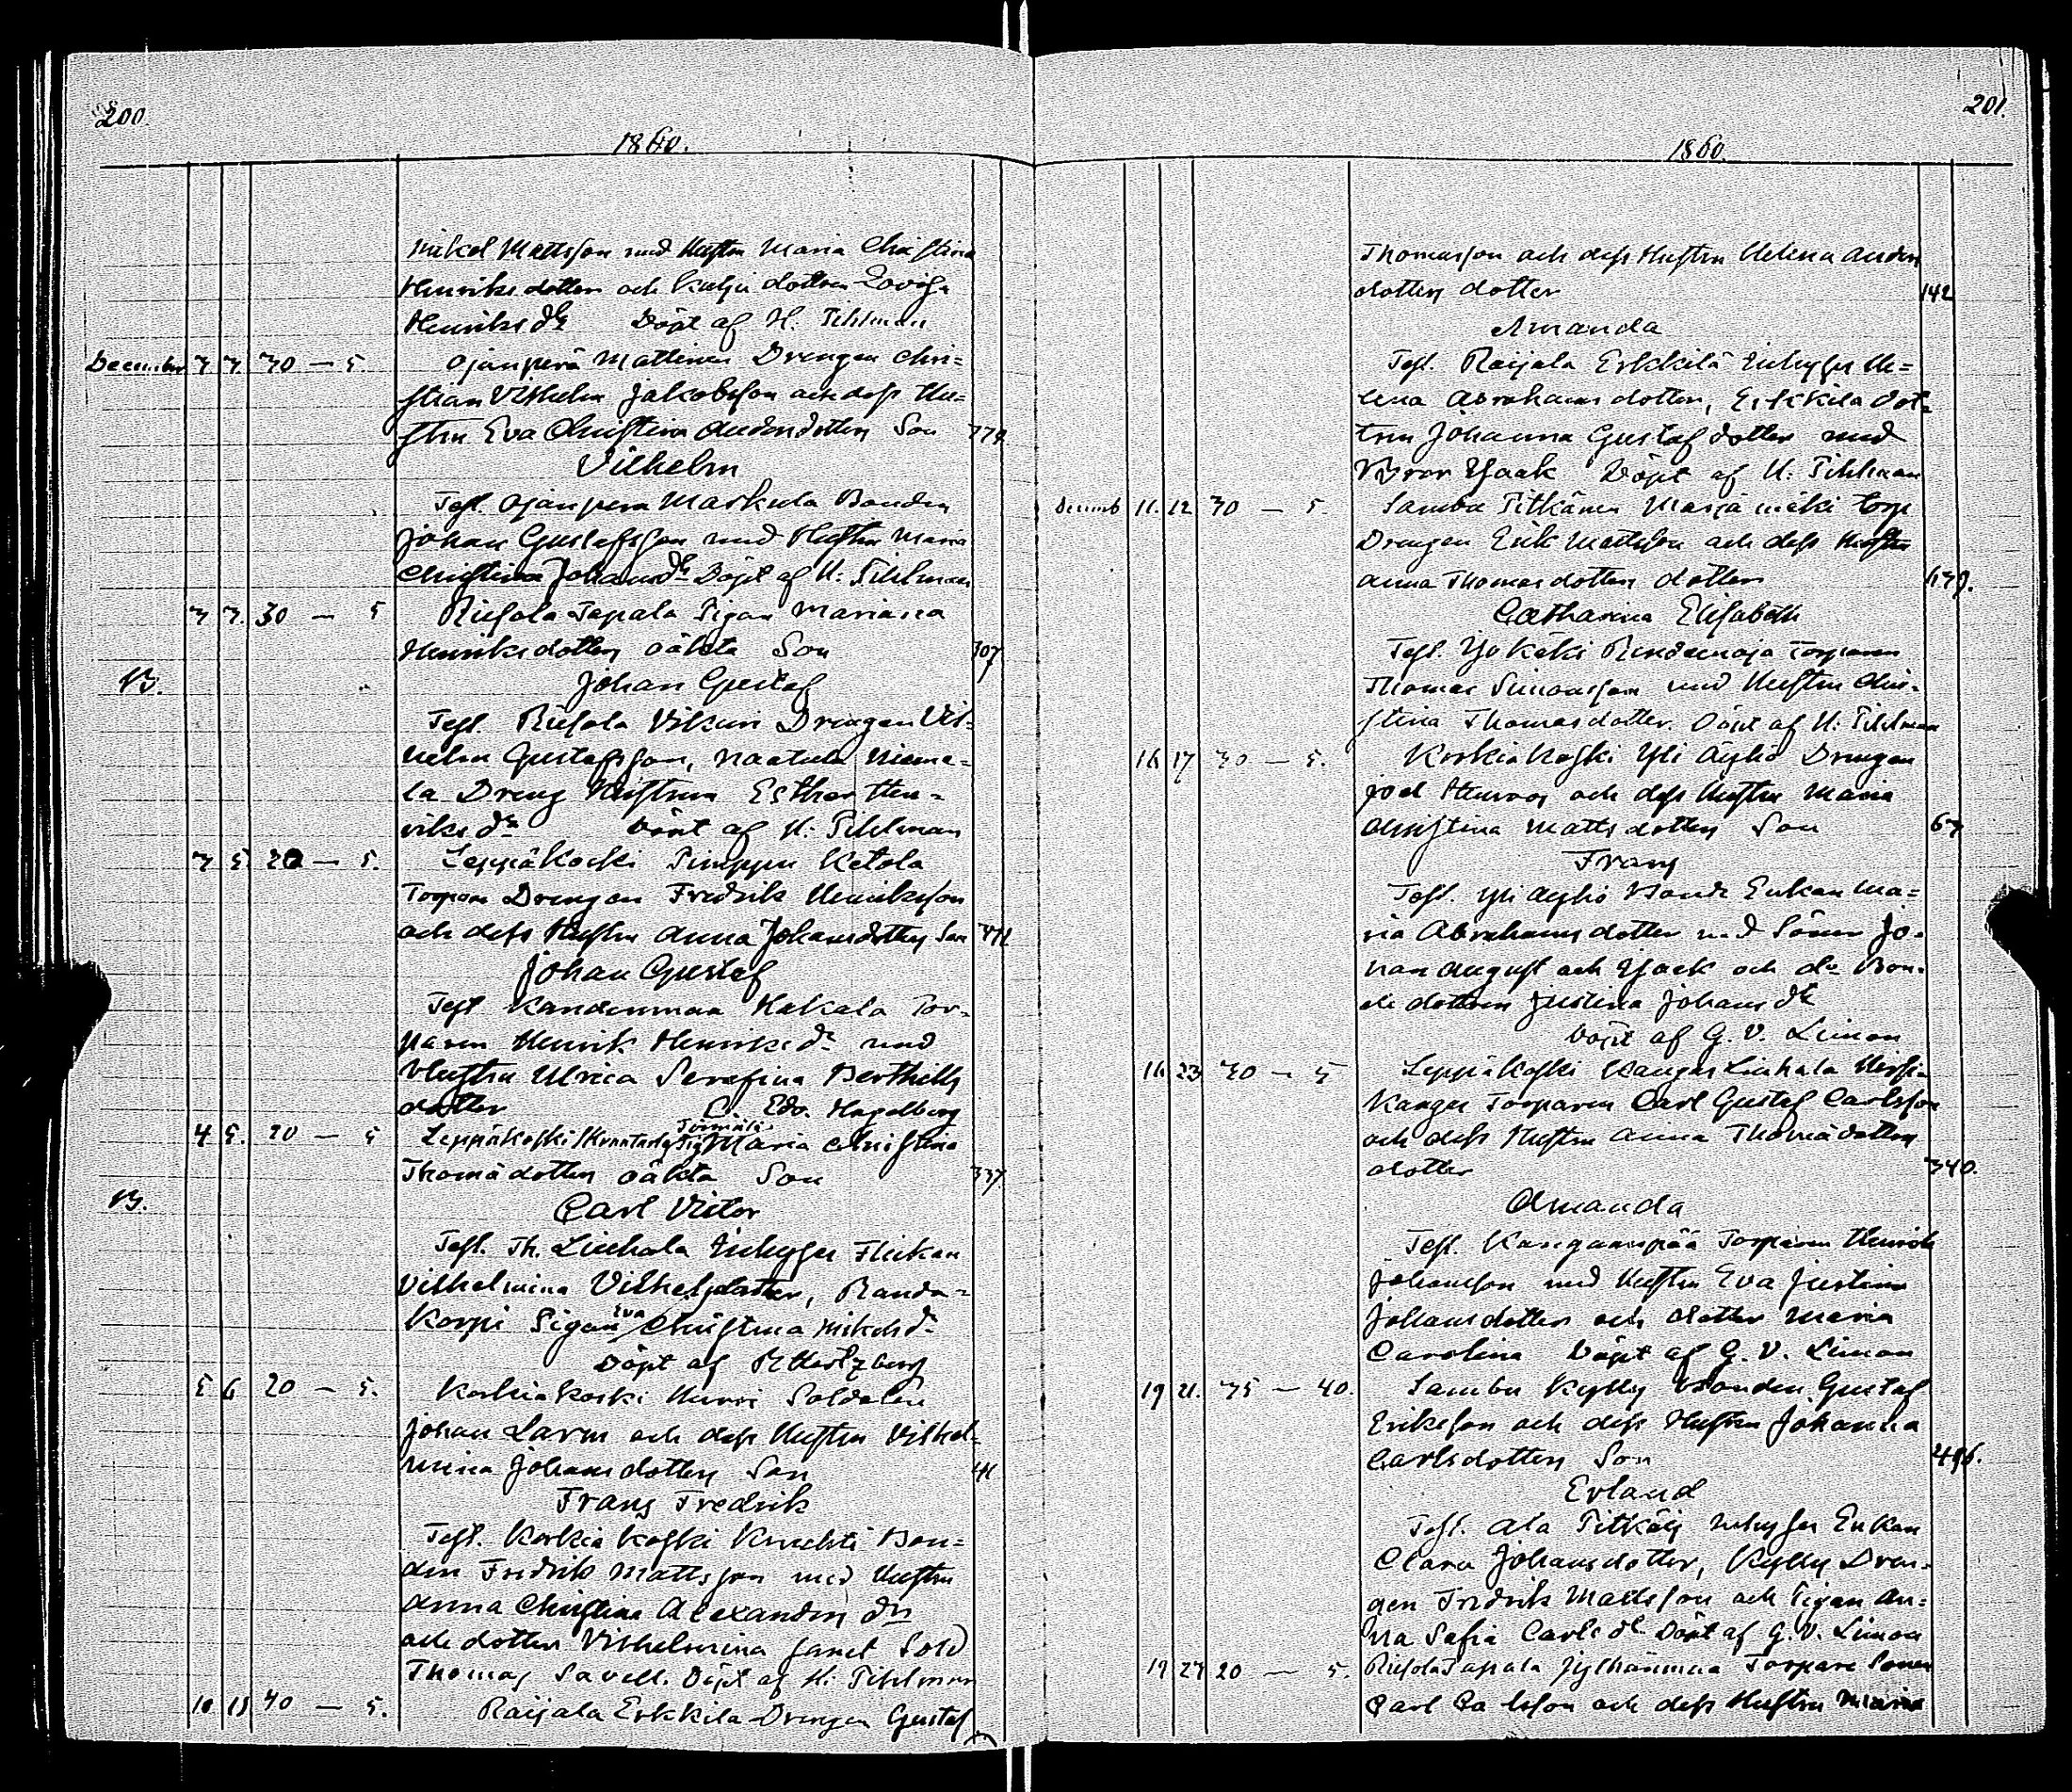 200.
1860.
Mikel Mattsson med Hustru Maria Christina
Henriksdotter och dottren Lovisa
Henriks dr Döpt af H. Pihlman
December 3. 3. 30 — 5. Ojanperä Mattinen Drengen Chri=
stian Vilhelm Jakobsson och dess Hu=
stru Eva Christina Andersdotters Son
Vilhelm
Test. Ojanperä Markula Bonden
Johan Gustafsson med Hustru Maria
Christina Johansdr Döpt af H. Pihlman
3 3. 30 — 5 Riisola Tapala Pigan Mariana
Henriksdotters oäkta Son 307
B. Johan Gustaf
Test. Riisola Vikuri Drengen Vil=
helm Gustafsson, Naatula Nieme=
la Dreng Hustrun Esther Hen=
riks dr Döpt af H. Pihlman
3 5. 20 — 5. Leppäkoski Pimppu Ketola
Torpare Drengen Fredrik Henriksson
och dess Hustru Anna Johansdotters Son
Johan Gustaf
Test Kandenmaa Hakala Tor=
paren Henrik Henriks dr med
Hustru Ulrica Serafina Berthills
dotter C. Edv. Hagelberg
4 5. 20 — 5 Leppäkoski Maria Christina
Thomädotters oäkta Son 337.
B. Carl Victor
Test. Th. Liuhala Inhyses Flickan
Vilhelmina Vilhelmsdotter, Randa=
korpi Pigan Eva Christina Mikels dr
Döpt af Hertzberg
5 6 20 — 5. Korkiakoski Hurri Soldaten
Johan Larm och dess Hustru Vilhel=
mina Johansdotters Son 41
Frans Fredrik
Test. Korkiakoski Knuchti Bon=
den Fredrik Mattsson med Hustru
Anna Christina Alexanders dr
och dotter Vilhelmina samt Sold
Thomas Savell. Döpt af H. Pihlman
10 13 40 — 5. Raijala Erkkilä Drengen Gustaf
201.
1860.
Thomasson och dess Hustru Helena Anders
dotters dotter 142
Amanda
Test. Raijala Erkkilä Inhyses He=
lena Abrahamsdotter, Erkkilä dot=
tren Johanna Gustafsdotter med
Broder Isaak Döpt af H. Pihlman
Decemb 11. 12 30 — 5. Sambu Pitkänen Marjamäki torp
Drengen Erik Mattsson och dess Hustru
Anna Thomasdotters dotter
Catharina Elisabeth
Test. Rindanoja Torparen
Thomas Simonsson med Hustru Chri=
stina Thomasdotter. Döpt af H. Pihlman
16 17 30 — 5. Korkiakoski Yli Äyhö Drengen
Joel Henrics och dess Hustru Maria
Christina Mattsdotters Son 67
Frans
Test. Yli Äyhö Bonde Enkan Ma=
ria Abrahamsdotter med Söner Jo=
han August och Isack och do Bon=
de dottren Justina Johans dr
Döpt af G. V. Liman
16 23 30 — 5 Leppäkoski Kangas Liuhala
Kangas Torparen Carl Gustaf Carlsson
och dess Hustru Anna Thomädotters
dotter 340.
Amanda
Test. Kangaanpää Torparen Henrik
Johansson med Hustru Eva Justina
Johansdotter och dotter Maria
Carolina Döpt af G. V. Liman
19 21. 35 — 40. Sambu Kylly Bonden Gustaf
Eriksson och dess Hustru Johanna
Carlsdotters Son 496.
Erland
Test. Ala Pitkäs Inhyses Enkan
Clara Johansdotter, Kylly Dren=
gen Fredrik Mattsson och Pigan An=
na Sofia Carls dr Döpt af G. V. Liman
19 27 20 — 5. Riisola Tapala Jylhänmaa Torpare Sonen
Carl Carlsson och dess Hustru Maria